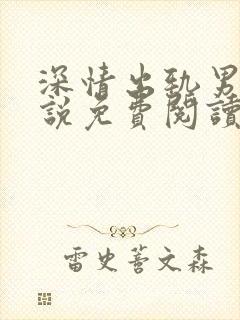 深情出轨男
說免費閱讀
雷史善文森